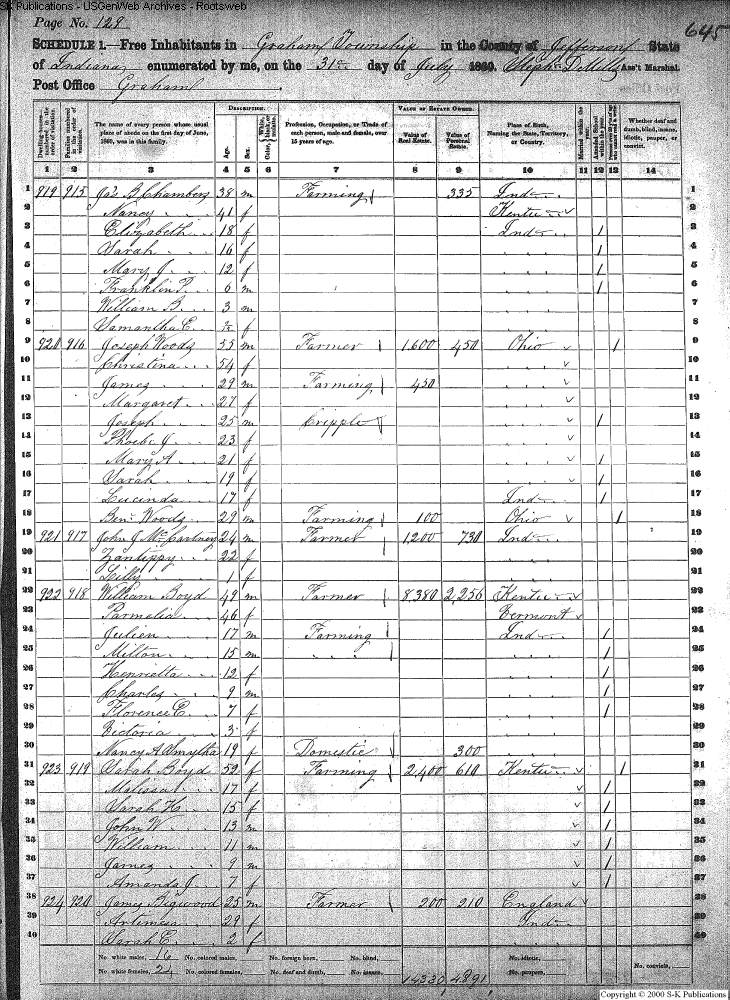 S-K Publications - USGenWeb Archives - Rootsweb
Page No. 129
645
SCHEDULE 1.—Free Inhabitants in Graham Township in the County of Jefferson State
of Indiana enumerated by me, on the 31st day of July 1860. Ass't Marshal
Post Office Graham
DESCRIPTION. VALUE OF ESTATE OWNED.
Dwelling-houses—numbered in the order of visitation. Families numbered in the order of visitation. The name of every person whose usual place of abode on the first day of June, 1860, was in this family. Age. Sex. Color, White, black, or mulatto. Profession, Occupation, or Trade of each person, male and female, over 15 years of age. Value of Real Estate. Value of Personal Estate. Place of Birth, Naming the State, Territory, or Country. Married within the year. Attended School within the year. Whether deaf and dumb, blind, insane, idiotic, pauper, or convict.
1 2 3 4 5 6 7 8 9 10 11 12 13 14
1 919 915 Jas B Chambers 38 m Farming 335 Ind 1
2 Nancy 41 f Kentu 2
3 Elizabeth 18 f Ind / 3
4 Sarah 16 f / 4
5 Mary J. 12 f / 5
6 Franklin P. 6 m / 6
7 William B. 3 m 7
8 Samantha E. f 8
9 920 916 Joseph Woods 55 m Farmer 1,600 450 Ohio / 9
10 Christina 54 f 10
11 James 29 m Farming 450 11
12 Margaret 27 f 12
13 Joseph 25 m Cripple / 13
14 Phoebe J 23 f 14
15 Mary A 21 f / 15
16 Sarah 19 f / 16
17 Lucinda 17 f Ind / 17
18 Benj Woods 29 m Farming 100 Ohio / 18
19 921 917 John J McCartney 24 m Farmer 1,200 730 Ind 19
20 Zantippy 22 f 20
21 Lilly 1 f 21
22 922 918 William Boyd 49 m Farmer 8,380 2,256 Kentu 22
23 Parmelia 46 f Vermont 23
24 Julien 17 m Farming Ind / 24
25 Milton 15 m / 25
26 Henrietta 12 f / 26
27 Charles 9 m / 27
28 Florence E. 7 f / 28
29 Victoria 3 f 29
30 Nancy A Smytha 19 f Domestic 300 30
31 923 919 Sarah Boyd 52 f Farming 2,400 610 Kentu / 31
32 Malissa 17 f / 32
33 Sarah H 15 f / 33
34 John W 13 m / 34
35 William 11 m / 35
36 James 9 m / 36
37 Amanda J 7 f / 37
38 924 920 James Bigwood 25 m Farmer 200 210 England 38
39 Artimisa 29 f Ind 39
40 Sarah E. 2 f 40
No. white males, 16 No. colored males, No. foreign born, No. blind, No. idiotic,
No. white females, 24 No. colored females, No. deaf and dumb, No. insane, 14330 4891 No. paupers, No. convicts,
Copyright © 2000 S-K Publications